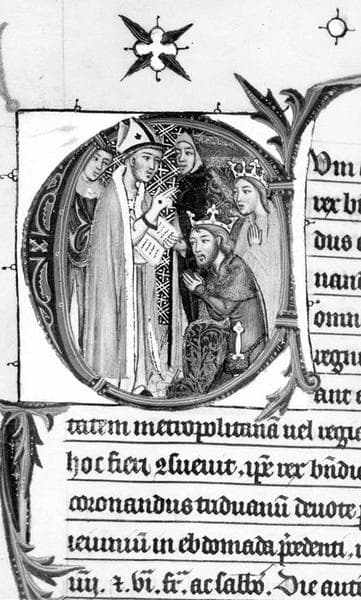 Um
rex
dus
nand
omn
regni
aut
tatem metropolitanā uel regie
hoc fieri ꝯsueuit, ip̄e rex bn̄di
coronandus triduanū deuote
ieiuniū in ebdomada p̄cedenti,
iiij. ⁊ vi. fr̄. ac sabb̄o. Die aut